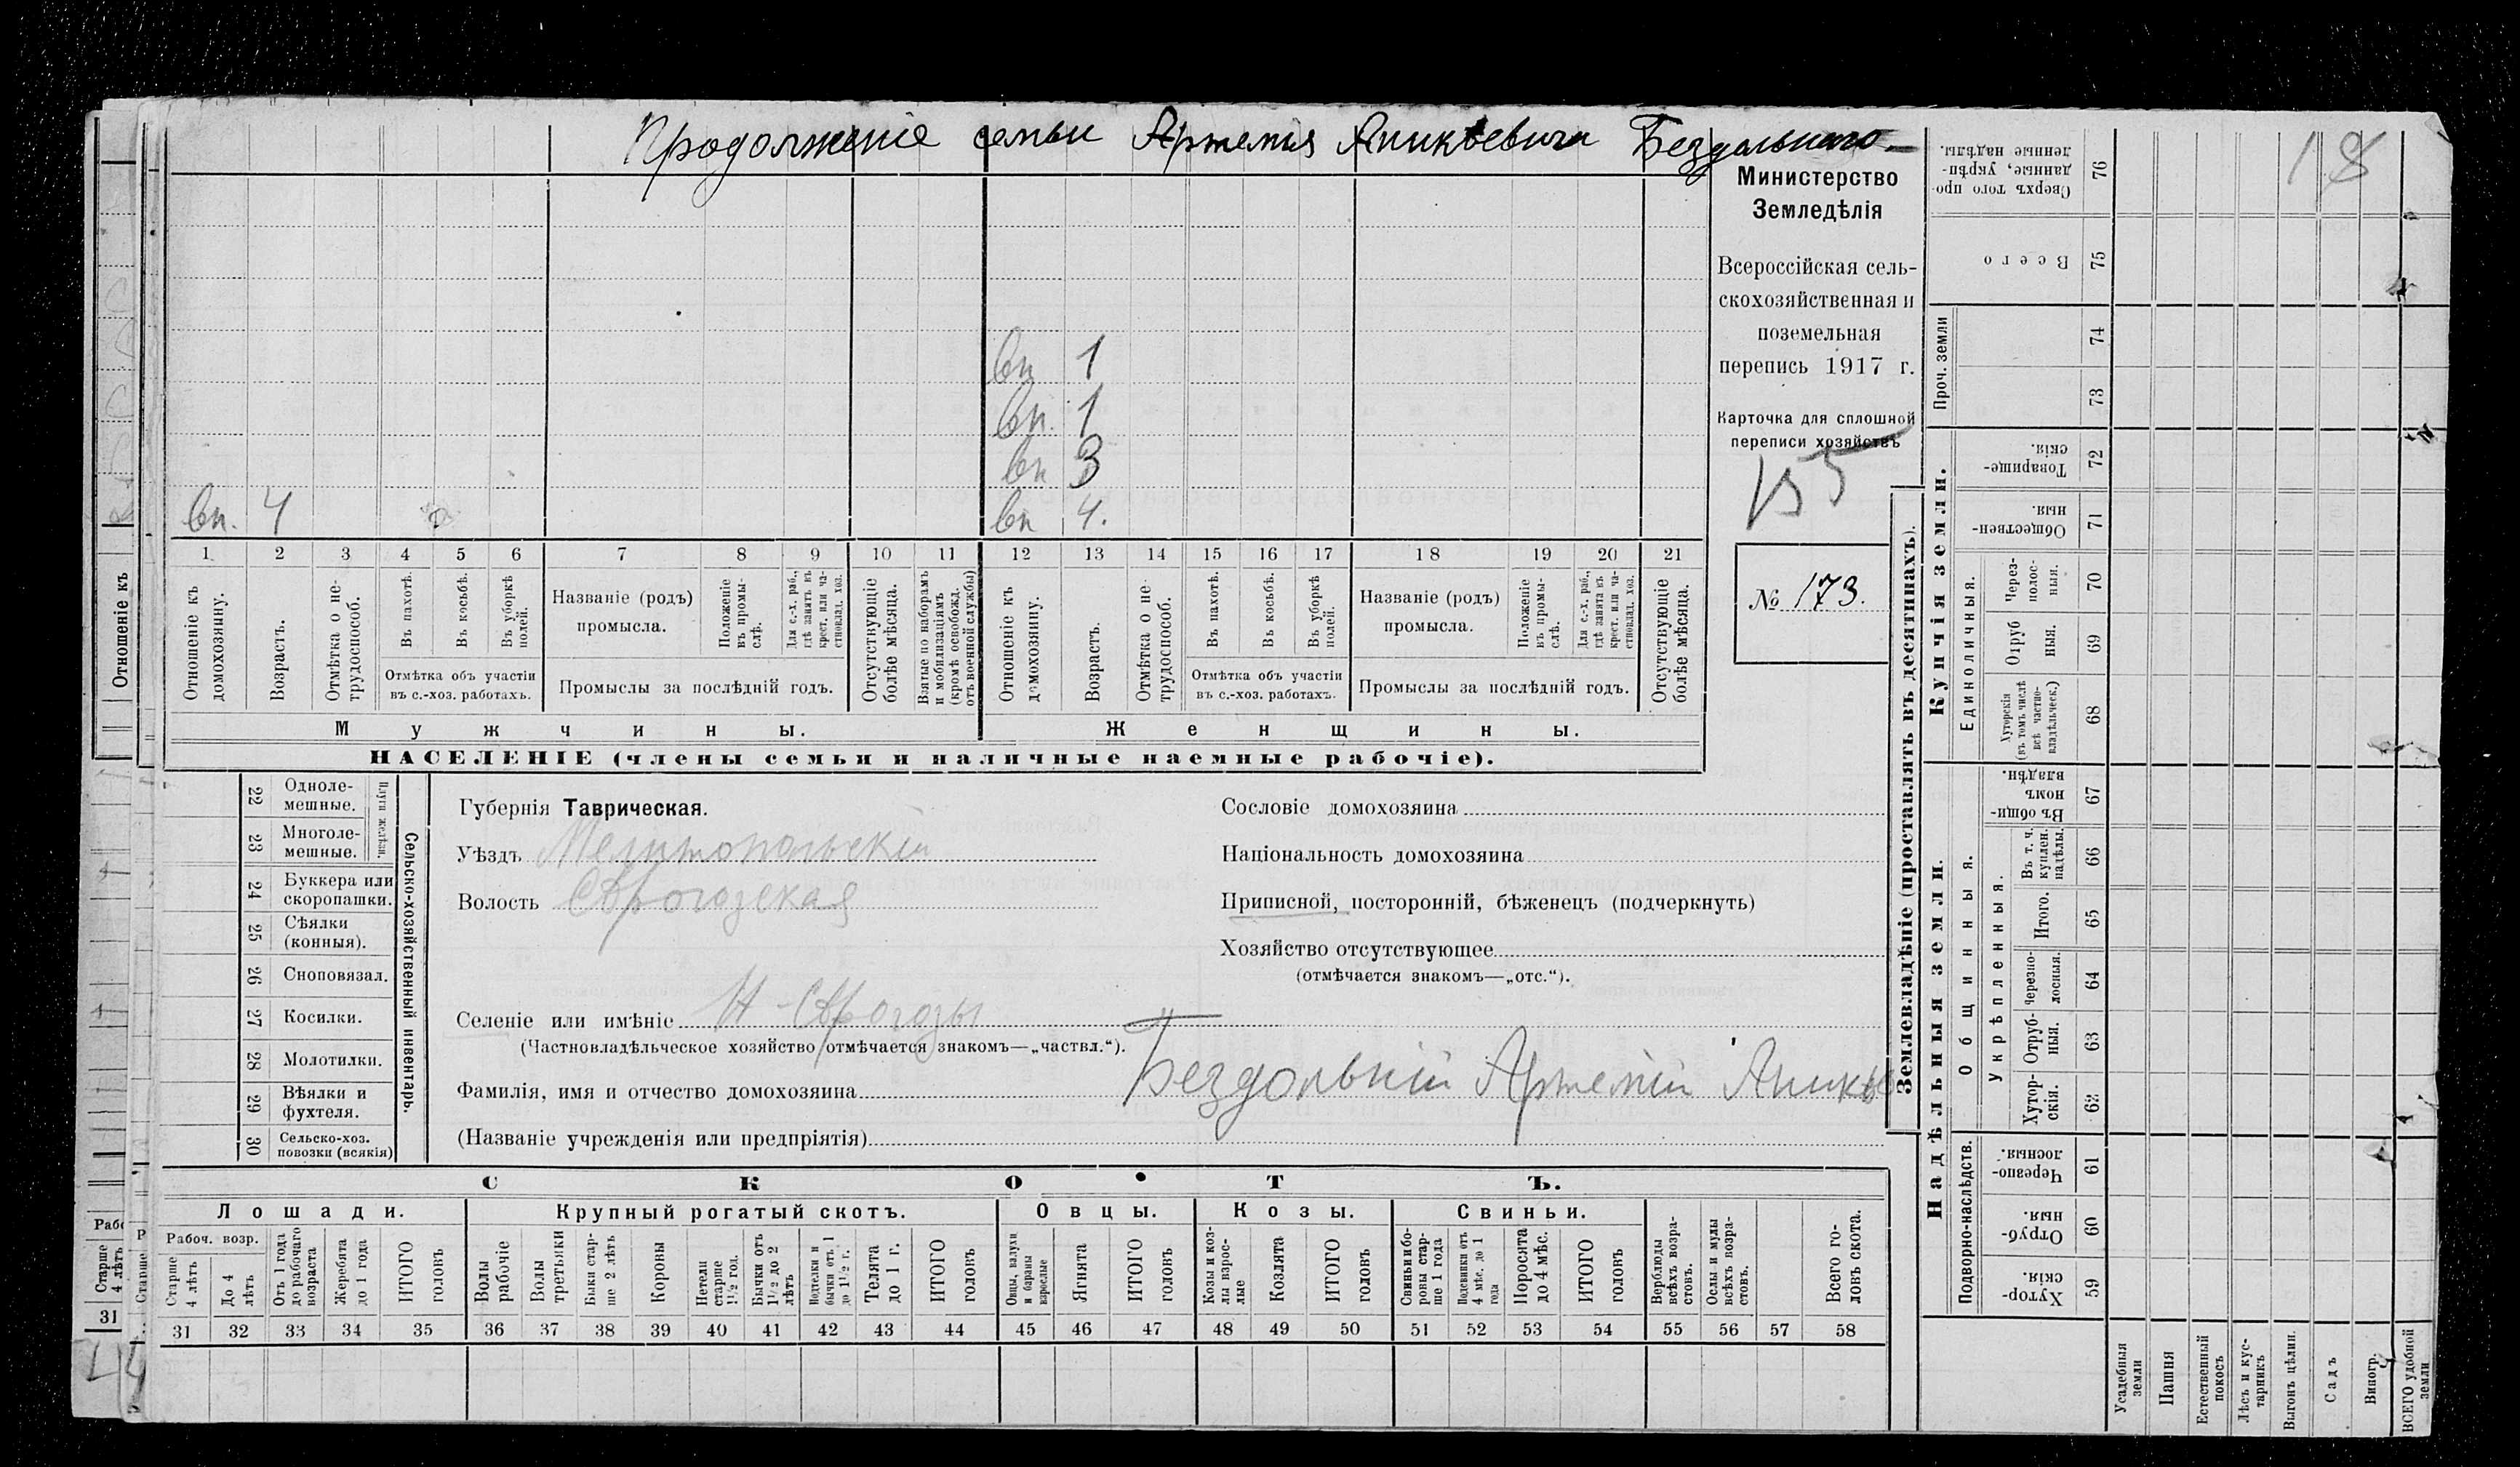 Продолженіе семьи Артемія Аникѣевича Бездольнаго
18
Министерство
Земледѣлія
Всероссійская сель-
скохозяйственная и
поземельная
перепись 1917 г.
Карточка для сплошной
переписи хозяйствъ
155
№ 173.
вп 1
вп. 1
вп 3
вп. 4
вп 4.
1 2 3 4 5 6 7 8 9 10 11 12 13 14 15 16 17 18 19 20 21
Отношеніе къ домохозяину.
Возрастъ.
Отмѣтка о не-трудоспособ.
Въ пахотѣ.
Въ косьбѣ.
Въ уборкѣ полей.
Отмѣтка объ участіи
въ с.-хоз. работахъ.
Названіе (родъ)
промысла.
Положеніе въ промы-слѣ.
Для с.-х. раб., гдѣ занятъ въ крест. или ча-стновлад. хоз.
Промыслы за послѣдній годъ.
Отсутствующіе болѣе мѣсяца.
Взятые по наборамъ и мобилизаціямъ (кромѣ освобожд. отъ военной службы)
Отношеніе къ домохозяину.
Возрастъ.
Отмѣтка о не-трудоспособ.
Въ пахотѣ.
Въ косьбѣ.
Въ уборкѣ полей.
Отмѣтка объ участіи
въ с.-хоз. работахъ.
Названіе (родъ)
промысла.
Положеніе въ промы-слѣ.
Для с.-х. раб., гдѣ занята въ крест. или ча-стновлад. хоз.
Промыслы за послѣдній годъ.
Отсутствующіе болѣе мѣсяца.
Мужчины.
Женщины.
НАСЕЛЕНІЕ (члены семьи и наличные наемные рабочіе).
22 Одноле-мешные.
23 Многоле-мешные.
Плуги желѣзн.
24 Буккера или скоропашки.
25 Сѣялки (конныя).
26 Сноповязал.
27 Косилки.
28 Молотилки.
29 Вѣялки и фухтеля.
30 Сельско-хоз. повозки (всякія)
Сельско-хозяйственный инвентарь.
Губернія Таврическая.
Уѣздъ Мелитопольскій
Волость
Селеніе или имѣніе
(Частновладѣльческое хозяйство отмѣчается знакомъ—„частвл.“).
Фамилія, имя и отчество домохозяина Бездольній Артемій Аникѣ
(Названіе учрежденія или предпріятія)
Сословіе домохозяина
Національность домохозяина
Приписной, посторонній, бѣженецъ (подчеркнуть)
Хозяйство отсутствующее
(отмѣчается знакомъ—„отс.“).
СКОТЪ.
Лошади.
Крупный рогатый скотъ.
Овцы.
Козы.
Свиньи.
Рабоч. возр.
Старше 4 лѣтъ
До 4 лѣтъ
Отъ 1 года до рабочаго возраста
Жеребята до 1 года
ИТОГО головъ
Волы рабочіе
Волы третьяки
Быки стар-ше 2 лѣтъ
Коровы
Нетели старше 1½ год.
Бычки отъ 1½ до 2 лѣтъ
Подтелки и бычки отъ 1 до 1½ г.
Телята до 1 г.
ИТОГО головъ
Овцы, валухи и бараны взрослые
Ягнята
ИТОГО головъ
Козы и коз-лы взрос-лые
Козлята
ИТОГО головъ
Свиньи и бо-ровы стар-ше 1 года
Подсвинки отъ 4 мѣс. до 1 года
Поросята до 4 мѣс.
ИТОГО головъ
Верблюды всѣхъ возра-стовъ.
Ослы и мулы всѣхъ возра-стовъ.
Всего го-ловъ скота.
31 32 33 34 35 36 37 38 39 40 41 42 43 44 45 46 47 48 49 50 51 52 53 54 55 56 57 58
Землевладѣніе (проставлять въ десятинахъ).
Купчія земли.
Надѣльныя земли.
Сверхъ того про-данные, укрѣп-ленные надѣлы. 76
Всего 75
Проч. земли
74
73
Товарище-скія. 72
Обществен-ныя. 71
Единоличныя.
Через-полос-ныя. 70
Отруб-ныя. 69
Хуторскія (въ томъ числѣ всѣ частно-владѣльческ.) 68
Общинныя.
Въ общи-номъ владѣн. 67
Укрѣпленныя.
Въ т. ч. куплен. надѣлы. 66
Итого. 65
Черезпо-лосныя. 64
Отруб-ныя. 63
Хутор-скія. 62
Подворно-наслѣдств.
Черезпо-лосныя. 61
Отруб-ныя. 60
Хутор-скія. 59
Усадебныя земли
Пашня
Естественный покосъ
Лѣсъ и кус-тарникъ
Выгонъ цѣлин.
Садъ
Виногр.
ВСЕГО удобной земли
Отношеніе къ
Старше 4 лѣтъ
31